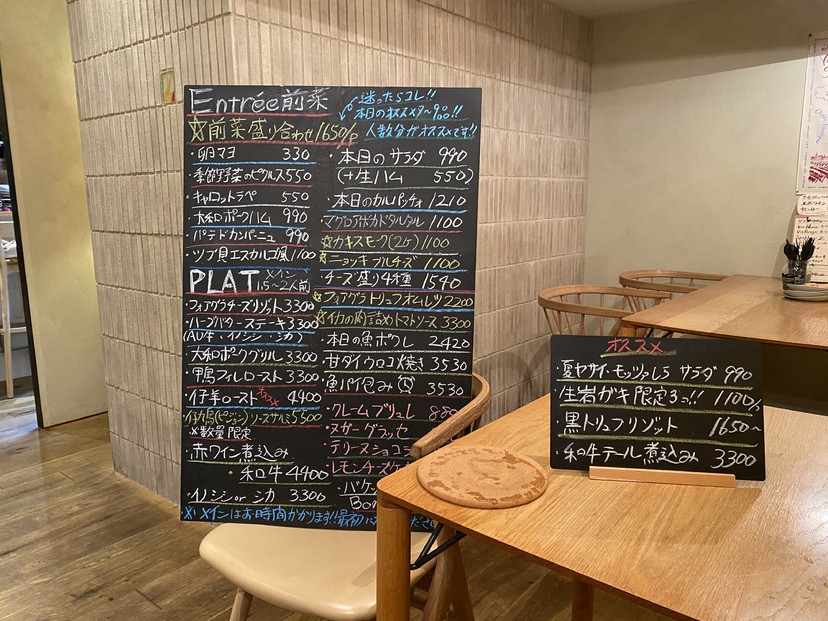 Entrée 前菜
迷ったらコレ!!
本日のオススメ7~9コ!!
人数分がオススメです!!
☆前菜盛り合わせ 1650/P
・卵マヨ 330
・季節野菜のピクルス 550
・キャロットラペ 550
・大和ポークハム 990
・パテドカンパーニュ 990
・ツブ貝エスカルゴ風 1100
PLAT メイン 1.5~2人前
・フォアグラチーズリゾット 3300
・ハーブバターステーキ 3300
(AU牛・イノシシ・シカ)
・大和ポークグリル 3300
・鴨フィレロースト 3300
・仔羊ロースト オススメ 4400
・仔鳩(ピジョン)ソースサルミ 5500
※数量限定
・赤ワイン煮込み
・和牛 4400
・イノシシ or シカ 3300
・本日のサラダ 990
(+生ハム 550)
・本日のカルパッチョ 1210
マグロアボカドタルタル 1100
☆カキスモーク(2ヶ) 1100
☆ニョッキブルチーズ 1100
・チーズ盛り4種 1540
☆フォアグラトリュフオムレツ 2200
☆イカの肉詰めトマトソース 3300
・本日の魚ポワレ 2420
・甘ダイウロコ焼き 3530
・魚パイ包み 3530
・クレームブリュレ 880
・ヌガーグラッセ
・テリーヌショコラ
・レモンチーズケ
・バケッ
※メインはお時間かかります!!最初に ださい
オススメ
・夏ヤサイ・モッツァレラ サラダ 990
・生岩ガキ 限定3つ!! 1100/P
・黒トリュフリゾット 1650~
・和牛テール煮込み 3300